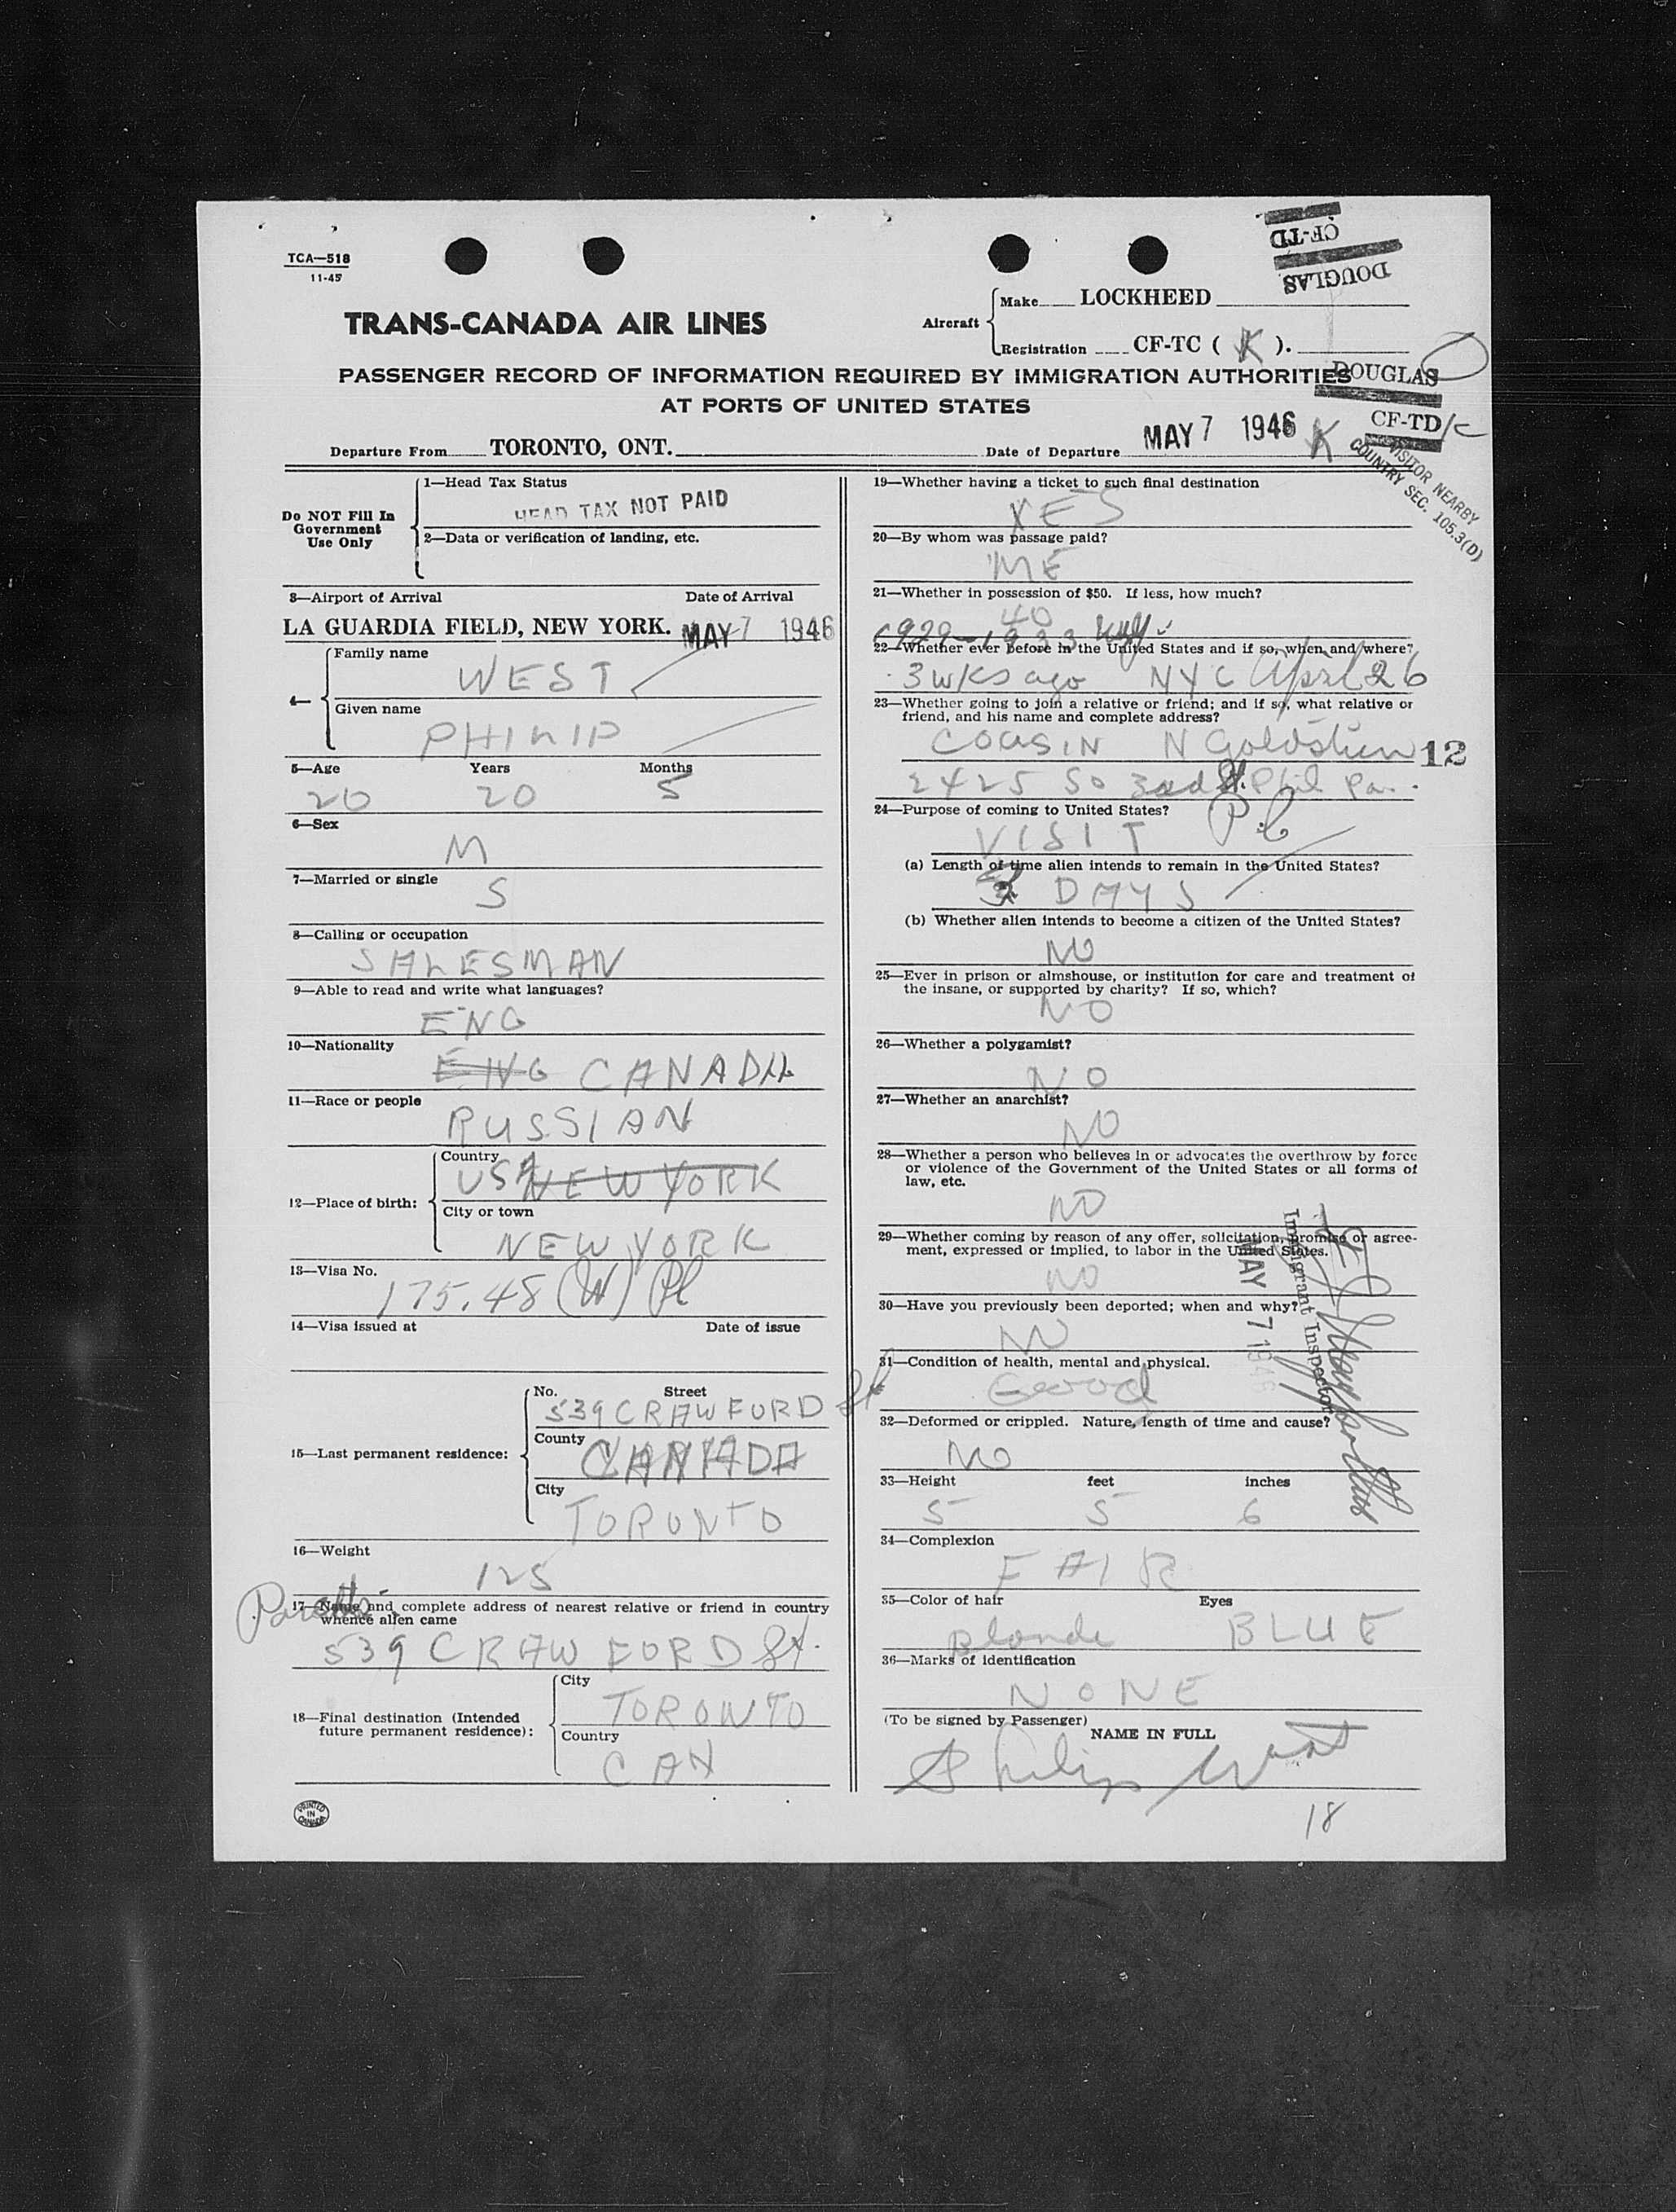 TCA—518
11-45
DOUGLAS
CF-TD
TRANS-CANADA AIR LINES
Aircraft
Make LOCKHEED
Registration CF-TC ( K ).
PASSENGER RECORD OF INFORMATION REQUIRED BY IMMIGRATION AUTHORITIES
AT PORTS OF UNITED STATES
DOUGLAS
CF-TD K
Departure From TORONTO, ONT.
Date of Departure MAY 7 1946 K
VISITOR NEARBY
COUNTRY SEC. 105.3(D)
Do NOT Fill In
Government
Use Only
1—Head Tax Status
HEAD TAX NOT PAID
2—Data or verification of landing, etc.
3—Airport of Arrival Date of Arrival
LA GUARDIA FIELD, NEW YORK. MAY 7 1946
4—
Family name
WEST
Given name
PHILIP
5—Age Years Months
20 20 5
6—Sex
M
7—Married or single
S
8—Calling or occupation
SALESMAN
9—Able to read and write what languages?
ENG
10—Nationality
ENG CANADA
11—Race or people
RUSSIAN
12—Place of birth:
Country
USA NEW YORK
City or town
NEW YORK
13—Visa No.
175.48 (W) Pl
14—Visa issued at Date of issue
15—Last permanent residence:
No. Street
539 CRAWFORD St
County
CANADA
City
TORONTO
16—Weight
125
17—Name and complete address of nearest relative or friend in country
whence alien came
539 CRAWFORD St.
18—Final destination (Intended
future permanent residence):
City
TORONTO
Country
CAN
PRINTED
IN
CANADA
19—Whether having a ticket to such final destination
YES
20—By whom was passage paid?
ME
21—Whether in possession of $50. If less, how much?
40
1929-1933
22—Whether ever before in the United States and if so, when and where?
3 wks ago NYC April 26
23—Whether going to join a relative or friend; and if so, what relative or
friend, and his name and complete address?
COUSIN N Goldstien 12
2425 So 3rd St. Phil Pa.
24—Purpose of coming to United States?
VISIT
(a) Length of time alien intends to remain in the United States?
DAYS
(b) Whether alien intends to become a citizen of the United States?
NO
25—Ever in prison or almshouse, or institution for care and treatment of
the insane, or supported by charity? If so, which?
NO
26—Whether a polygamist?
NO
27—Whether an anarchist?
NO
28—Whether a person who believes in or advocates the overthrow by force
or violence of the Government of the United States or all forms of
law, etc.
NO
29—Whether coming by reason of any offer, solicitation, promise or agree-
ment, expressed or implied, to labor in the United States.
NO
30—Have you previously been deported; when and why?
NO
31—Condition of health, mental and physical.
Good
32—Deformed or crippled. Nature, length of time and cause?
NO
33—Height feet inches
5 5 6
34—Complexion
FAIR
35—Color of hair Eyes
Blonde BLUE
36—Marks of identification
NONE
(To be signed by Passenger)
NAME IN FULL
Philip West
18
MAY 7 1946
Immigrant Inspector